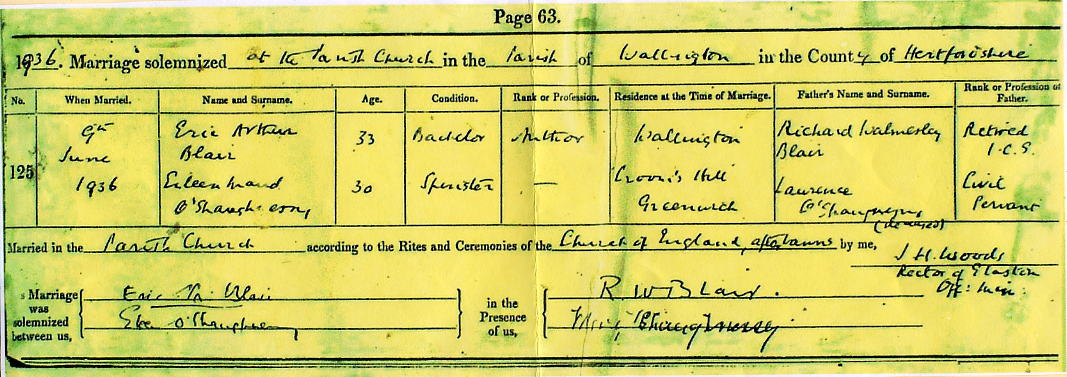 Page 63.
1936. Marriage solemnized at the Parish Church in the Parish of Wallington in the County of Hertfordshire
No. When Married. Name and Surname. Age. Condition. Rank or Profession. Residence at the Time of Marriage. Father's Name and Surname. Rank or Profession of Father.
125
9th June 1936
Eric Arthur Blair 33 Bachelor Author Wallington Richard Walmesley Blair Retired I.C.S.
Eileen Maud O'Shaughnessy 30 Spinster — Croom's Hill Greenwich Laurence O'Shaughnessy (deceased) Civil Servant
Married in the Parish Church according to the Rites and Ceremonies of the Church of England, after banns by me,
J H. Woods
Rector of Elaston
Off: Min.
s Marriage was solemnized between us,
Eric A. Blair
O'Shaughnessy
in the Presence of us,
R W Blair.
O'Shaughnessy